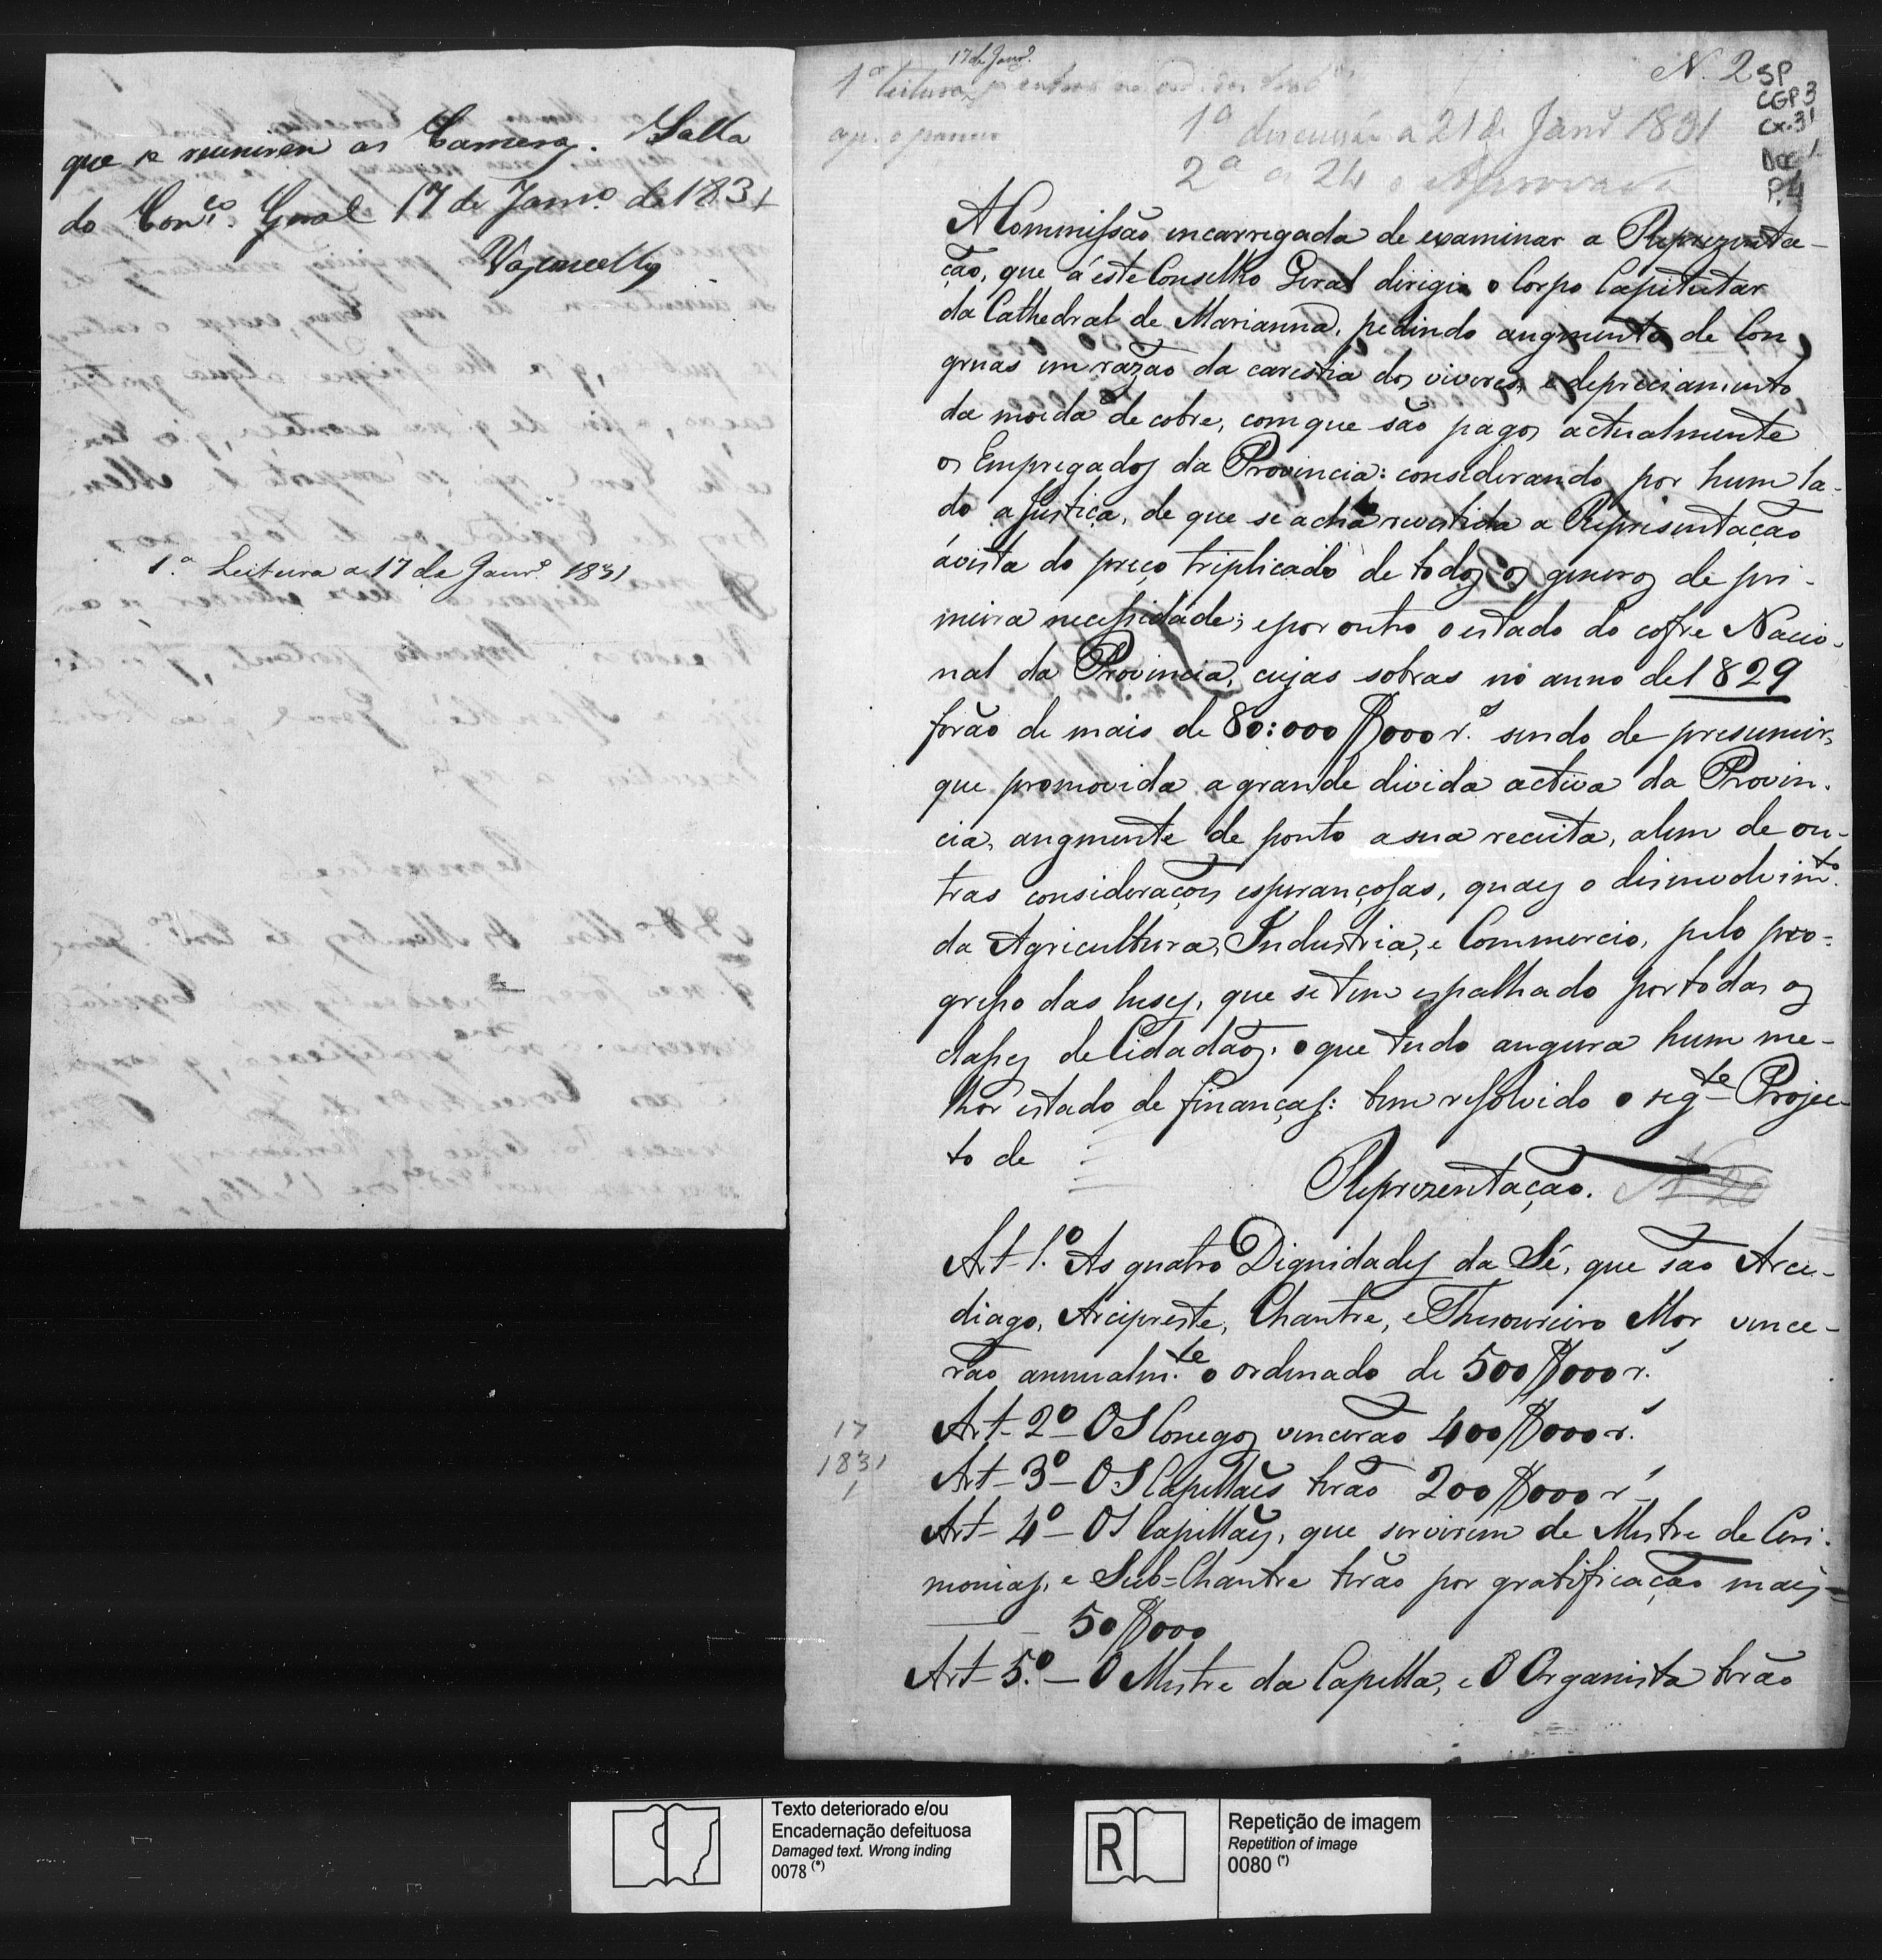 que se reunirem as Cameras. Salla
do Cons.º Geral 17 de Janr.º de 1831
Vasconcellos
1.ª Leitura a 17 de Janr.º 1831
17 de Janr.º
1ª Leitura
N. 2
SP
CGP 3
Cx. 31
Doc 1
P. 4
1ª discussão a 21 de Janr.º 1831
2ª a 24 e Aprovada
A Commissão encarregada de examinar a Reprezenta-
ção, que á éste Conselho Geral dirigio o Corpo Capitular
da Cathedral de Marianna, pedindo augmento de Con
gruas em razão da carestia dos viveres, e depreciamento
da moeda de cobre, com que são pagos actualmente
os Empregados da Provincia: considerando por hum la-
do a Justiça, de que se acha revestida a Representação
ávista do preço triplicado de todos os generos de pri-
meira necessidade; e por outro o estado do cofre Nacio-
nal da Provincia, cujas sobras no anno de 1829
forão de mais de 80:000$000 r.s sendo de presumir,
que promovida a grande divida activa da Provin-
cia, augmente de ponto a sua receita, alem de ou-
tras considerações esperançosas, quaes o disinvolvim.to
da Agricultura, Industria, e Commercio, pelo pro-
gresso das luses, que se tem espalhado por todas as
classes de Cidadãos, o que tudo augura hum me-
lhor estado de finanças: tem resolvido o seg.te Projec-
to de
Reprezentação.
Art. 1.º As quatro Dignidades da Sé, que são Arce-
diago, Arcipreste, Chantre, e Thesoureiro Mor vence-
rão annualm.te o ordenado de 500$000 r.s
Art. 2º - OS Conegos vencerão 400$000 r.s
Art. 3º - OS Capellães terão 200$000 r.s
Art. 4º - OS Capellães, que servirem de Mestre de Ceri-
monias, e Sub=Chantre terão por gratificação mais=
50$000
Art. 5.º - O Mestre da Capella, e O Organista terão
17
1831
1
Texto deteriorado e/ou
Encadernação defeituosa
Damaged text. Wrong inding
0078 (*)
R
Repetição de imagem
Repetition of image
0080 (*)